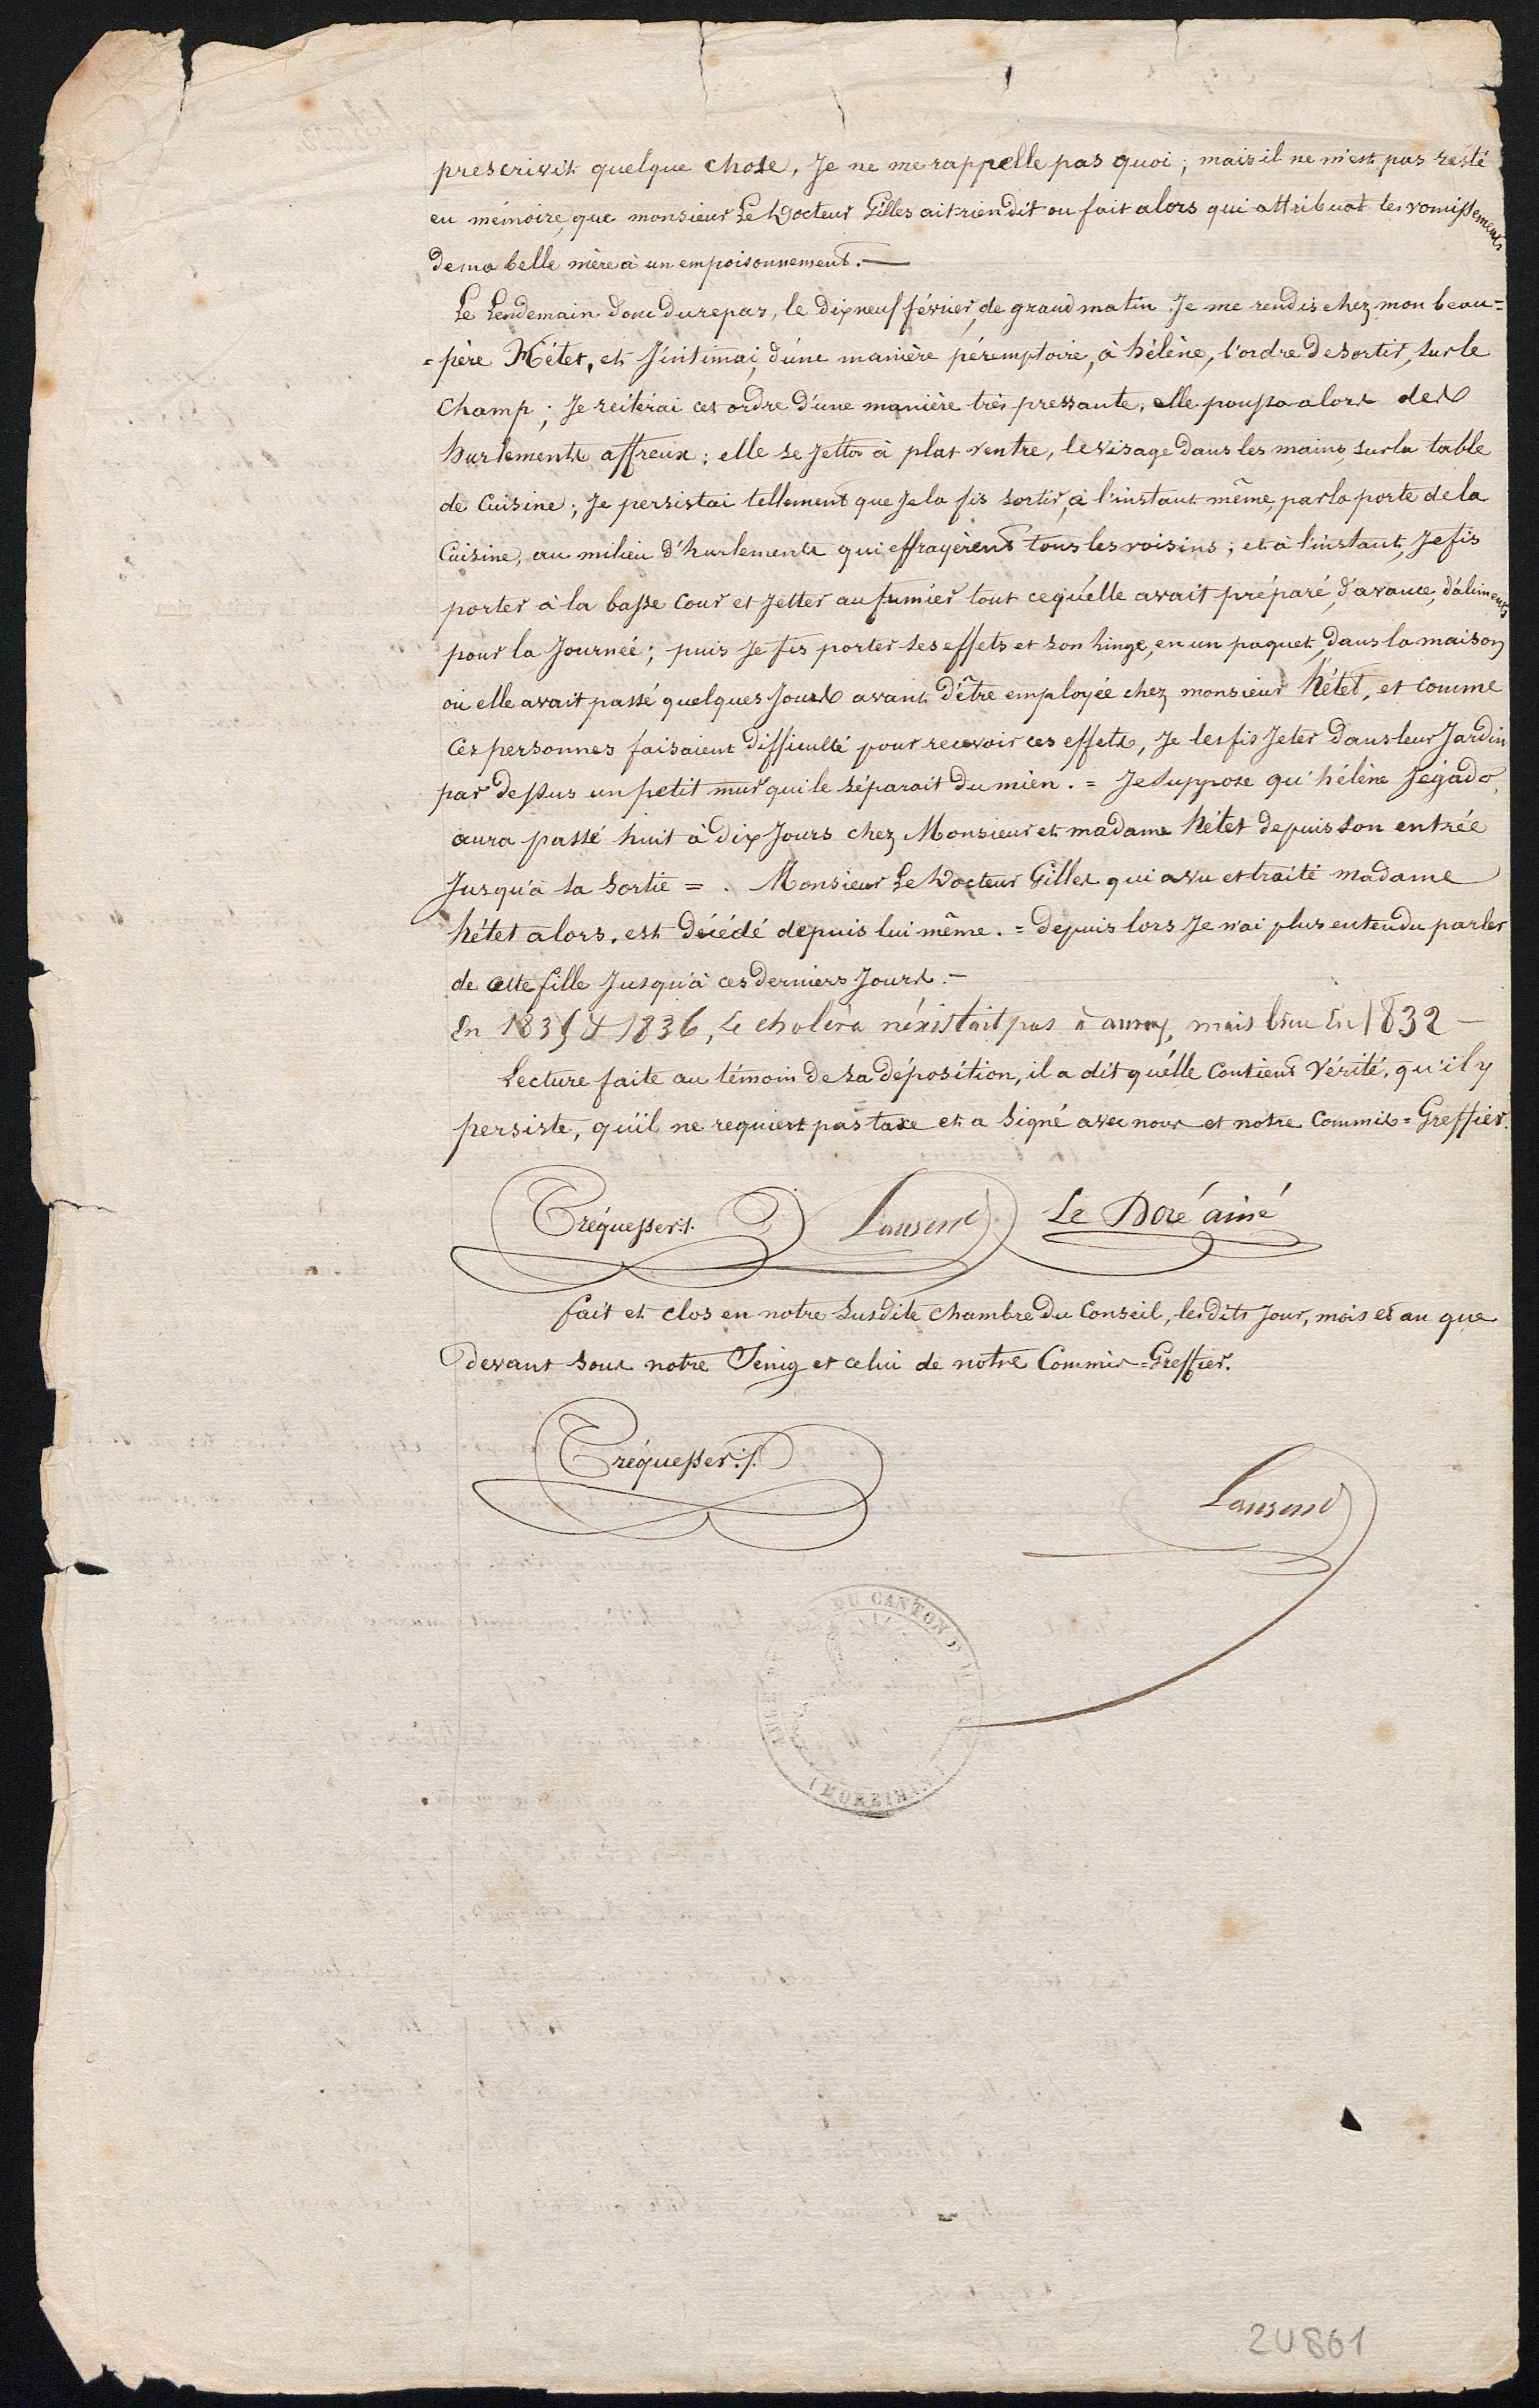 prescrivit quelque chose, Je ne me rappelle pas quoi; mais il ne m'est pas resté
en mémoire, que monsieur Le Docteur Gilles ait rien dit ou fait alors qui attribuat les vomissements
de ma belle mère à un empoisonnement. —
Le Lendemain donc du repas, le dix neuf février, de grand matin Je me rendis chez mon beau=
=père Hétet, et J'intimai, d'une manière péremptoire, à hélène, l'ordre de sortir, sur le
champ; Je réitérai cet ordre d'une manière très pressante, elle poussa alors des
hurlements affreux; elle se jetta à plat ventre, le visage dans les mains, sur la table
de Cuisine; Je persistai tellement que Je la fis sortir, à l'instant même, par la porte de la
Cuisine, au milieu d'hurlements qui effrayèrent tous les voisins; et à l'instant, Je fis
porter à la basse Cour et jetter au fumier tout ce qu'elle avait préparé, d'avance, d'aliments
pour la Journée; puis Je fis porter ses effets et son linge, en un paquet, dans la maison
où elle avait passé quelques Jours avant d'être employée chez monsieur hétet, et comme
Ces personnes faisaient difficulté pour recevoir ces effets, Je les fis Jeter dans leur Jardin
par dessus un petit mur qui le séparait du mien. = Je suppose qu'hélène Jégado,
aura passé huit à dix Jours chez Monsieur et madame hétet depuis son entrée
Jusqu'à sa sortie = . Monsieur Le Docteur Gilles qui a vu et traité madame
hétet alors, est décédé depuis lui même. = depuis lors Je n'ai plus entendu parler
de cette fille Jusqu'à ces derniers Jours. —
En 1835 & 1836, le choléra n'éxistait pas à auray, mais bien en 1832 —
Lecture faite au témoin de sa déposition, il a dit qu'elle Contient vérité, qu'il y
persiste, qu'il ne requiert pas taxe et a signé avec nous et notre Commis=Greffier.
Tréquesser Le Doré ainé
fait et clos en notre susdite chambre du Conseil, lesdits Jour, mois et an que
devant sous notre Seing et celui de notre Commis=Greffier.
Tréquesser
DU CANTON
(MORBIHAN)
2U861